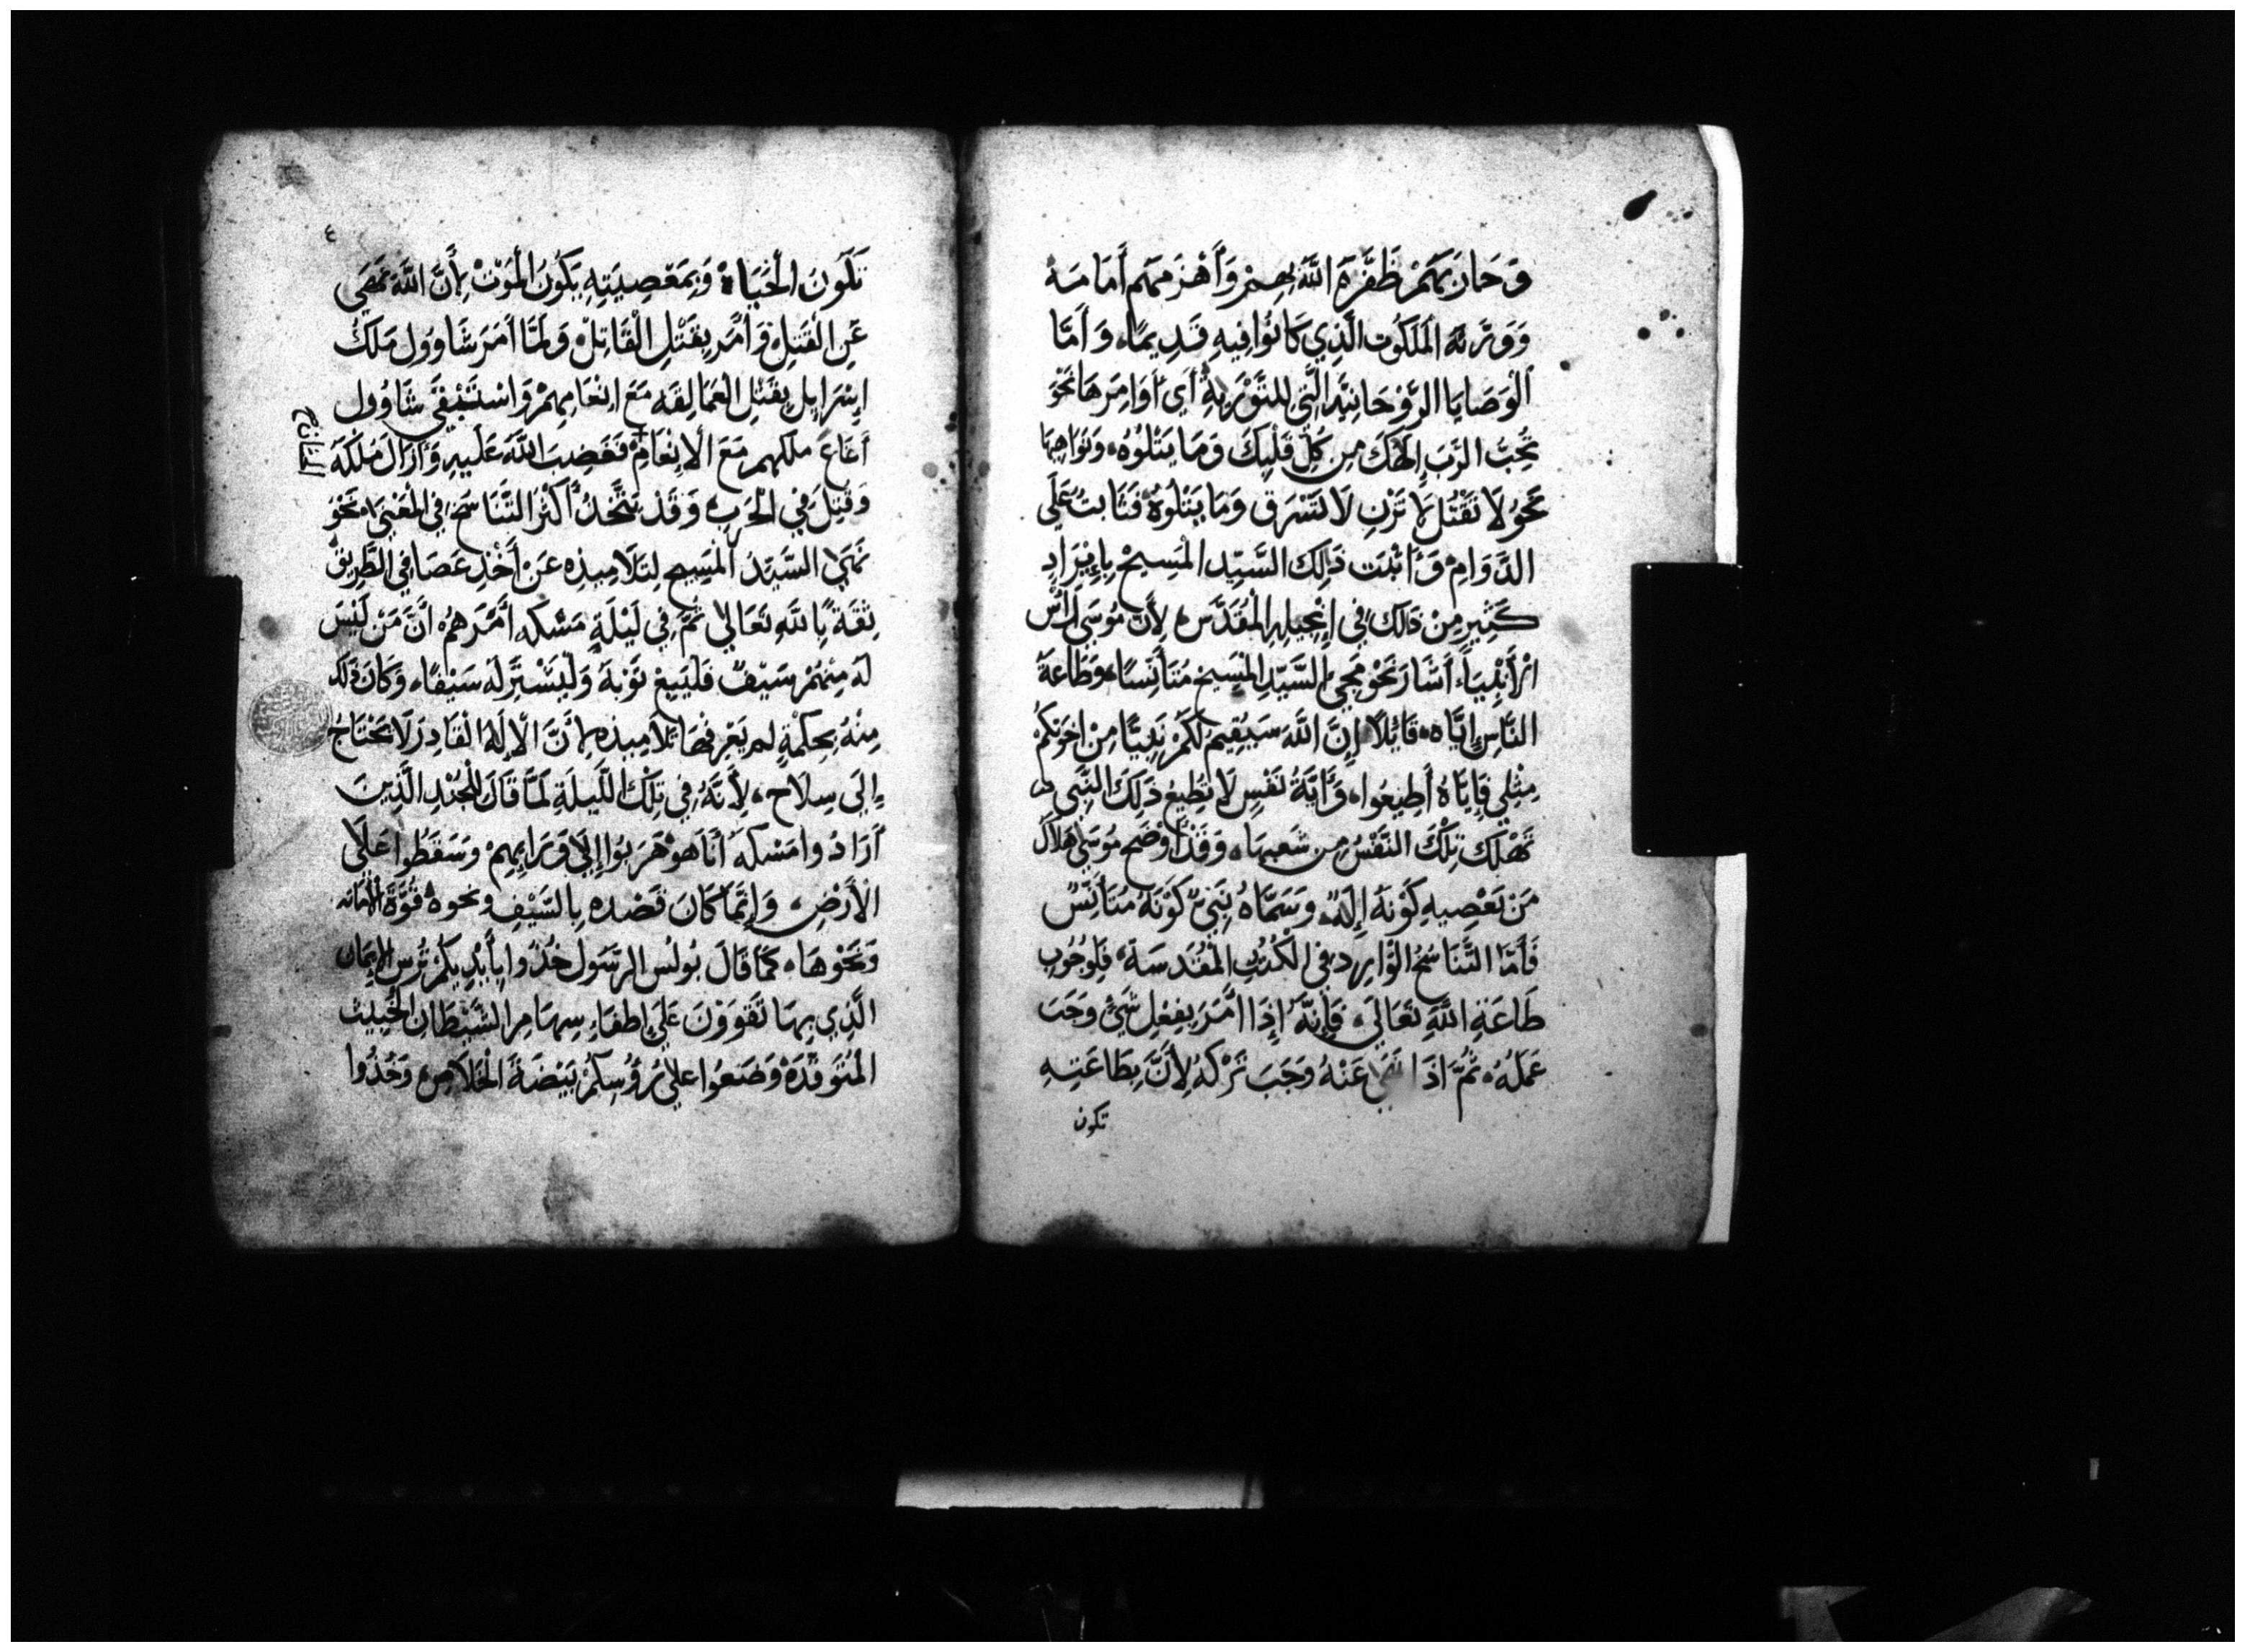 وَحَارَبَهَمْ ظَفَّرَهَ اللَّهَ بِهِمْ وَأَهْزَمَهم أَمَامَه
وَوَرَّثَهُ المَلَكُوت الَّذِي كَانُوا فِيهِ قَدِيمًا، وَأَمَّا
الْوَصَايَا الرُّوْحَانِيَّه الَّتِي لِلتَّوْرَيةِ أَي أَوَامِرَهَا نَحْوَ
تُحِبُّ الرَّبَ إِلَهَكَ مِن كُلِّ قَلْبِكَ وَمَا يَتْلُوُهُ، وَنَوَاهِيهَا
نَحْوُ لَا تَقْتُلْ لَا تَزْنِ لَا تَسْرَق وَمَا يَتْلُوُهُ فَثَابتُ عَلَى
الدَّوَامِ، وَأَثْبَت ذَلِكَ السَّيِّد الْمَسِيحْ بِإِيْرَادِ
كَثِيرٍ مِنْ ذَلكَ فِي إِنْجِيلِهِ الْمُقَدَّسِ، لِأَنَّ مُوسَى رَأْس
الْأَنْبِيَاءِ أَشَارَ نَحْوَ مَجِيّ السَّيّدِ الْمَسِيح مُتَأَنِّسًا، وَطَاعَةَ
النَّاسِ إِيَّاه، قَائِلًا إِنَّ اللَّهَ سَيُقِيمُ لَكُمْ نَبِيًّا مِنْ اخوَتِكُمْ
مِثْلِي فَإِيَّاهُ أَطِيعُوا، وَأَيَّةُ نَفْسٍ لَا تُطِيعُ ذَلِكَ النَّبِي
تَهْلك تِلْكَ النَّفْسُ مِن شَعبِهَا، وَقَدْ أَوْضَح مُوسَى هَلَاكَ
مَنْ يَعْصِيهِ كَوْنَهُ إِلَهً، وَسَمَّاهُ نَبِيّ كَوْنَهُ مُتَأَنِّسْ
فَأَمَّا التَّنَاسُخُ الْوَارِد فِي الْكُتُبِ الْمُقَدسَة، فَلِوُجُوبِ
طَاعَةِ اللَّهِ تَعَالَى، فَإِنَّهُ إِذَا أَمَرَ بِفِعْلِ شَيْ وَجَبَ
عَمَلُهُ، ثُمَّ اذَا نَهَى عَنْهُ وَجَبَ تَرْكُهُ لِأَنَّ بِطَاعَتِهِ
تكون
٤
تَكُونَ الْحَيَاهْ وَبِمَعْصِيَتِهِ يَكُونُ الْمَوْتْ لِأَنَّ اللَّهَ نَهَى
عَنِ الْقَتلِ وَأَمَرَ بِقَتْلِ الْقَاتِلْ، وَلَمَّا أَمَرَ شَاوُولَ مَلكُ
إِسْرَايِل بِقَتْلِ الْعَمَالِقَه مَعَ انْعَامِهِمْ وَاسْتَبْقَى شَاوُول
أَغَاغَ ملكهم مَعَ الْانْعَامِ، فَغَضِبَ اللَّهَ عَلَيهِ وَأَزَالَ مُلْكَهُ
التناسخ
وَقُتِلَ فِي الْحَرَبِ، وَقَدْ يَتَّخِذُ أَكْثَرَ التَّنَاسُخ فِي الْمَعْنَى، نَحْوَ
نَهَى السَّيّدَ الْمَسِيح لِتَلَامِيذِه عَنْ أَخْذِ عَصَا فِي الطَّرِيقْ
ثِقَةً بِاللَّهِ تَعَالَى ثُمَّ فِي لَيْلَةِ مَسْكه أَمَرَهُمْ، انَّ مَنْ لَيْسَ
لَه مِنْهُمْ سَيْفً فَلْيَبِيعْ ثَوْبَهُ وَلْيَشْتَرِ لَه سَيْفًا، وَكَانَ ذَلكَ
مِنْهُ بِحِكْمَةٍ لم يَعْرِفْهَا تلَامِيذه لِأَنَّ الْإِلَهُ الْقَادِرَ لَا يَحْتَاجُ
إِلَى سِلَاح، لِأَنَّهُ فِي تِلْكَ اللَّيلَةِ لَمَّا قَالَ لِلْجُنْدِ الَّذِينَ
أَرَادُوا مَسْكهُ أَنَا هُو هَرَبُوا إِلَى وَرَايِهِمْ وَسَقَطُوا عَلَى
الْأَرْضِ، وَإِنَّمَا كَانَ قَصْده بِالسَّيْفِ ونحوه قُوَّةَ الْأمَانه
وَنَحْوهَا، كَمَا قَالَ بُولُس الرَّسُول خُذُوا بِأَيْدِيكُمْ تُرْس الْإِيمَان
الَّذِي بِهَا تَقْوَوْنَ عَلَى إِطفَاءِ سِهَامِ الشَّيْطَانِ الْخَبِيث
الْمُتَوَقِّدَه وَضَعُوا عَلَى رُؤُسِكُمْ بَيْضَةَ الْخَلَاصِ، وَخُذُوا